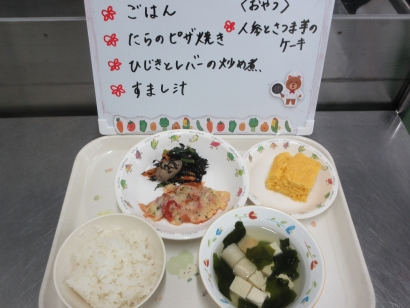 ごはん
たらのピザ焼き
ひじきとレバーの炒め煮
すまし汁
〈おやつ〉
人参とさつま芋の
ケーキ